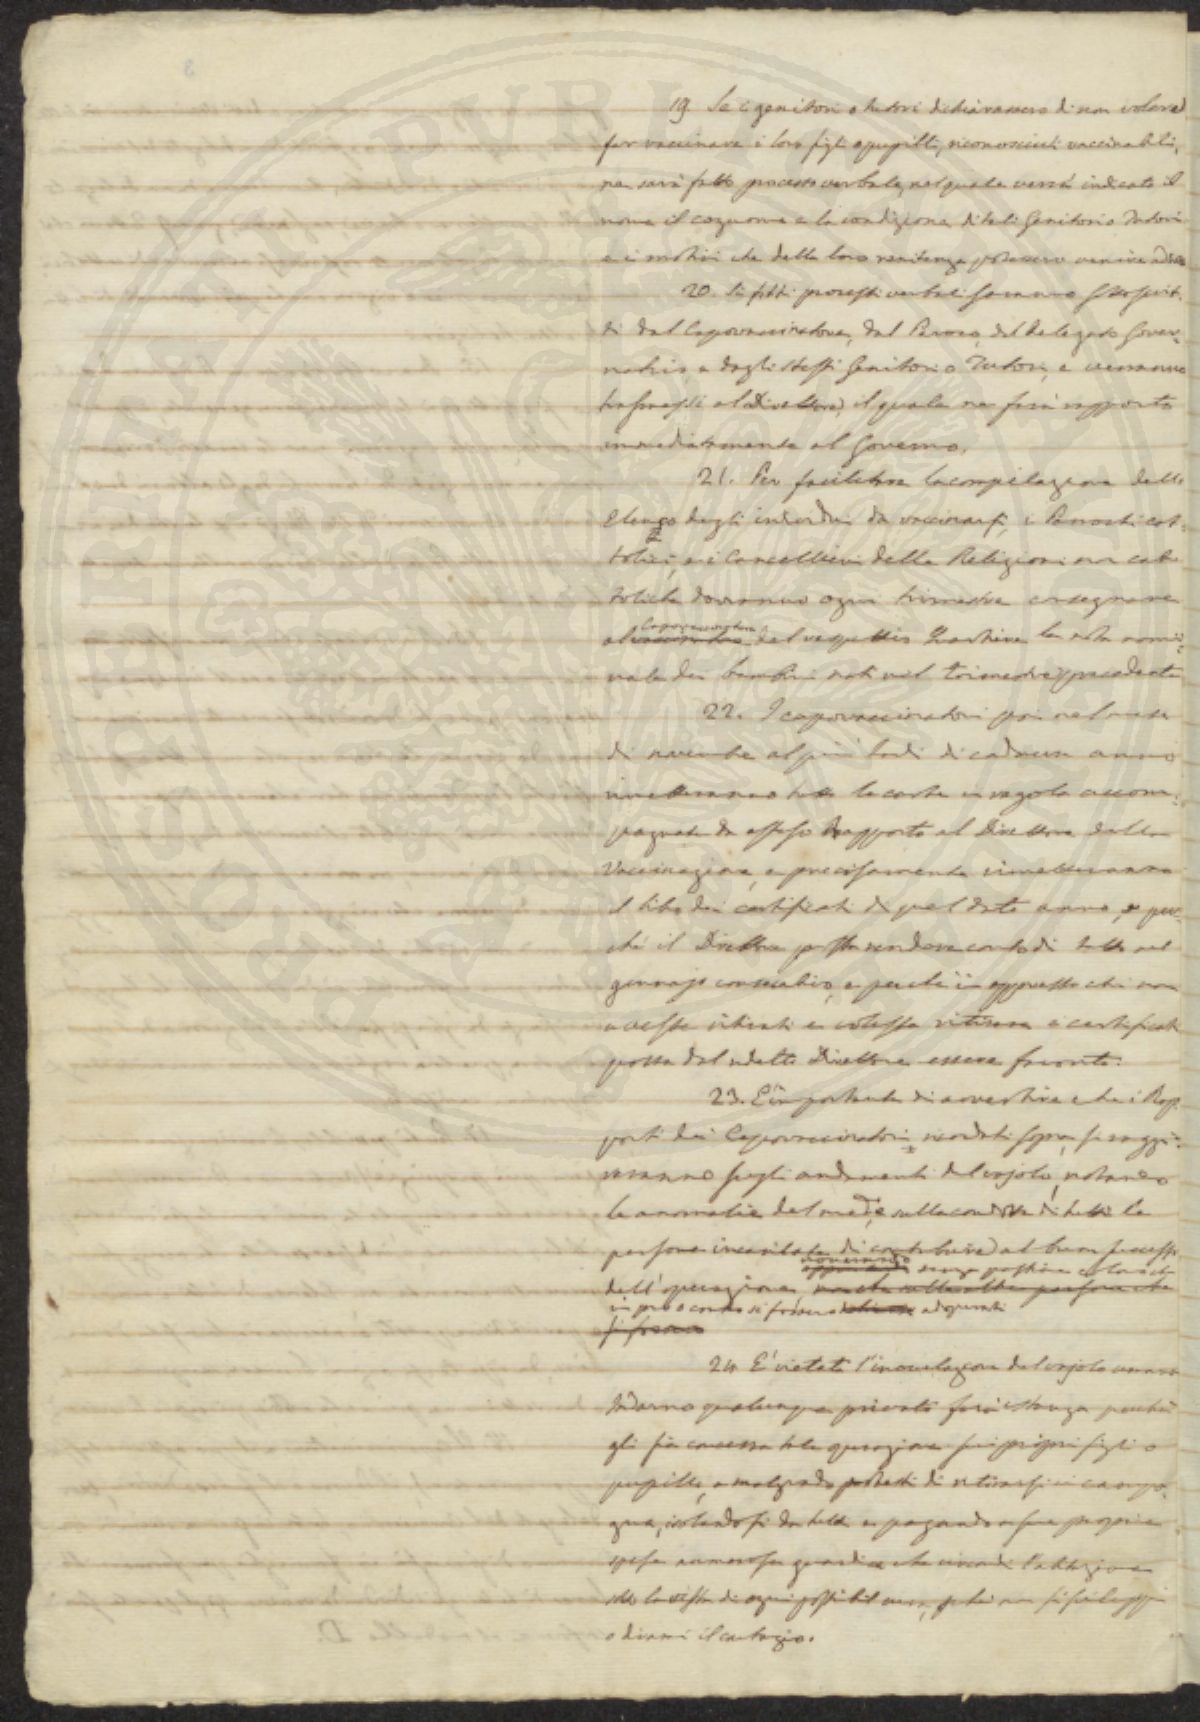 19. Se i genitori o tutori dichiarassero di non volere
far vaccinare i loro figli o pupilli, riconosciuti vaccinabili,
ne sarà fatto processo verbale, nel quale verrà indicato il
nome il cognome e la condizione di tali Genitori o Tutori
e i motivi che della loro renitenza potessero venire
20. Si fatti processi verbali saranno sottoscrit-
ti dal Capovaccinatore, dal Parroco, dal Delegato Gover-
nativo e dagli stessi Genitori o Tutori, e verranno
trasmessi al Direttore, il quale ne farà rapporto
immediatamente al Governo.
21. Per facilitare la compilazione dello
Elenco degli individui da vaccinarsi, i Parrochi cat-
tolici, e i Cancellieri delle Religioni non cat-
toliche dovranno ogni trimestre consegnare
al Capovaccinatore del rispettivo la nota nomi-
nale dei bambini nati nel trimestre precedente
22. I capovaccinatori poi nel mese
di novembre al più tardi di cadaun anno
rimetteranno tutte le carte in regola accom-
pagnate da esteso rapporto al Direttore della
Vaccinazione, e precisamente rimetteranno
il libro dei certificati di quel dato anno, per-
ché il Direttore possa rendere conto di tutto nel
gennajo consecutivo, e perché
avesse ritirati e volesse ritirare i certificati
possa dal udetto Direttore essere
23. È importante di avvertire che i Rap-
porti dei Capovaccinatori, ricordati sopra, si raggi-
reranno sugli andamenti del vajolo, notando
le anomalie del med.º, e sulla condotta di tutte le
persone incaricate di contribuire al buon successo
senza
dell'operazione, non che sulle altre persone che
in pro o contro si fossero adoperati
si fossero
24. È vietata l'inoculazione del vajolo umano
Indarno qualunque privato farà istanza perché
gli sia concessa tale operazione sui proprj figli o
pupilli, e malgrado protesti di ritirarsi in campa-
gna, isolandosi da tutti e pagando a sue proprie
spese numerose guardie che circondi l'abitazione
sotto la vista di ogni possibil uso, e che non si sviluppi
o dirami il contagio.